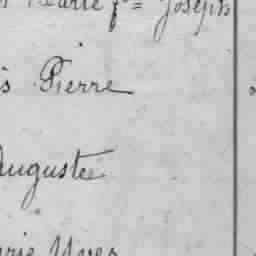 Marie fs = Joseph
s Pierre
Auguste
rie Yves